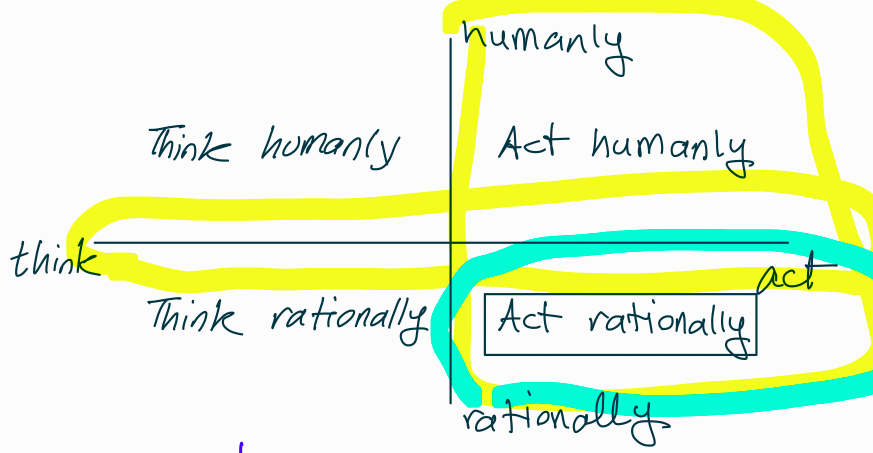 humanly
Think humanly Act humanly
think act
Think rationally Act rationally
rationally